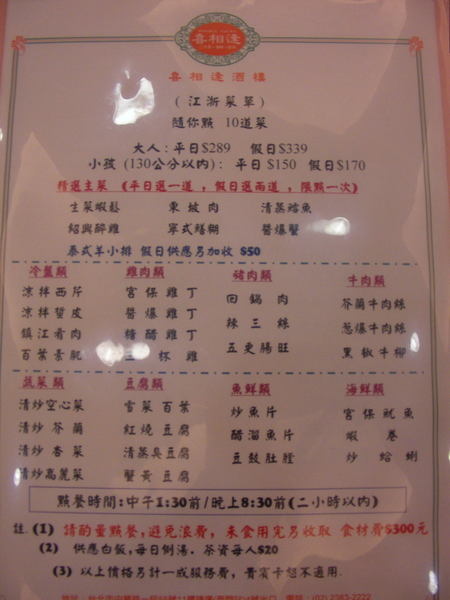 喜相逢
喜相逢酒樓
(江浙菜單)
隨你點 10道菜
大人:平日$289 假日$339
小孩 (130公分以內): 平日 $150 假日 $170
精選主菜 (平日選一道,假日選兩道,限點一次)
生菜蝦鬆 東坡肉 清蒸鱈魚
紹興醉雞 寧式鱔糊 醬爆蟹
泰式羊小排 假日供應另加收 $50
冷盤類 雞肉類 豬肉類 牛肉類
涼拌西芹 宮保雞丁 回鍋肉 芥蘭牛肉絲
涼拌蜇皮 醬爆雞丁 辣三絲 蔥爆牛肉絲
鎮江肴肉 糖醋雞丁 五更腸旺 黑椒牛柳
百葉素 三杯雞
蔬菜類 豆腐類 魚鮮類 海鮮類
清炒空心菜 雪菜百葉 炒魚片 宮保魷魚
清炒芥蘭 紅燒豆腐 醋溜魚片 蝦卷
清炒杏菜 清蒸臭豆腐 豆豉肚膛 炒蛤蜊
清炒高麗菜 蟹黃豆腐
點餐時間:中午1:30前/晚上8:30前(二小時以內)
註.(1) 請酌量點餐,避免浪費,未食用完另收取 食材費$300元
(2) 供應白飯,每日例湯.茶資每人$20
(3) 以上價格另計一成服務費,貴賓卡恕不適用.